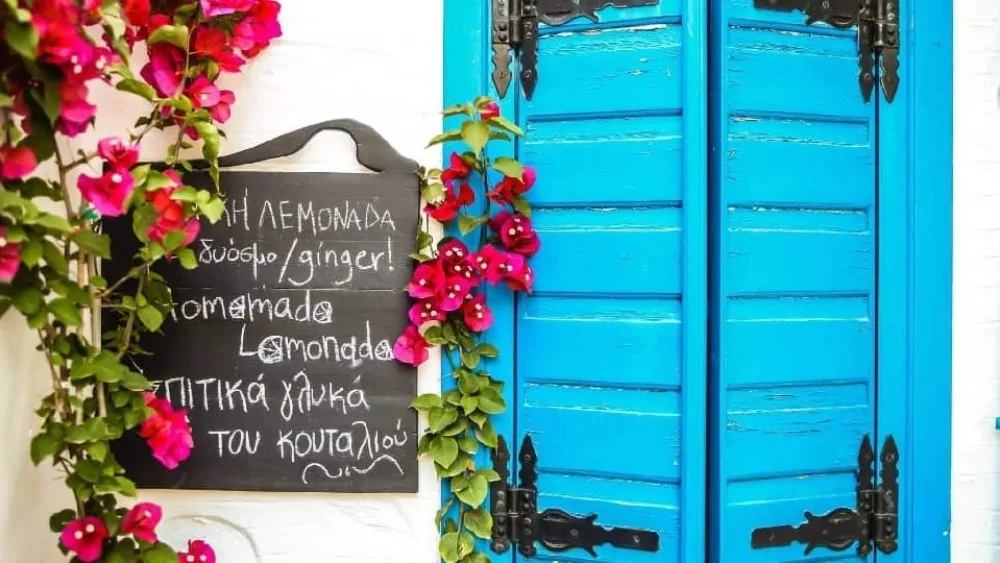 ΛΗ ΛΕΜΟΝΑΔΑ
δυόσμο/ginger!
Homemade
Lemonade
ΣΠΙΤΙΚά γλυκά
του κουταλιού